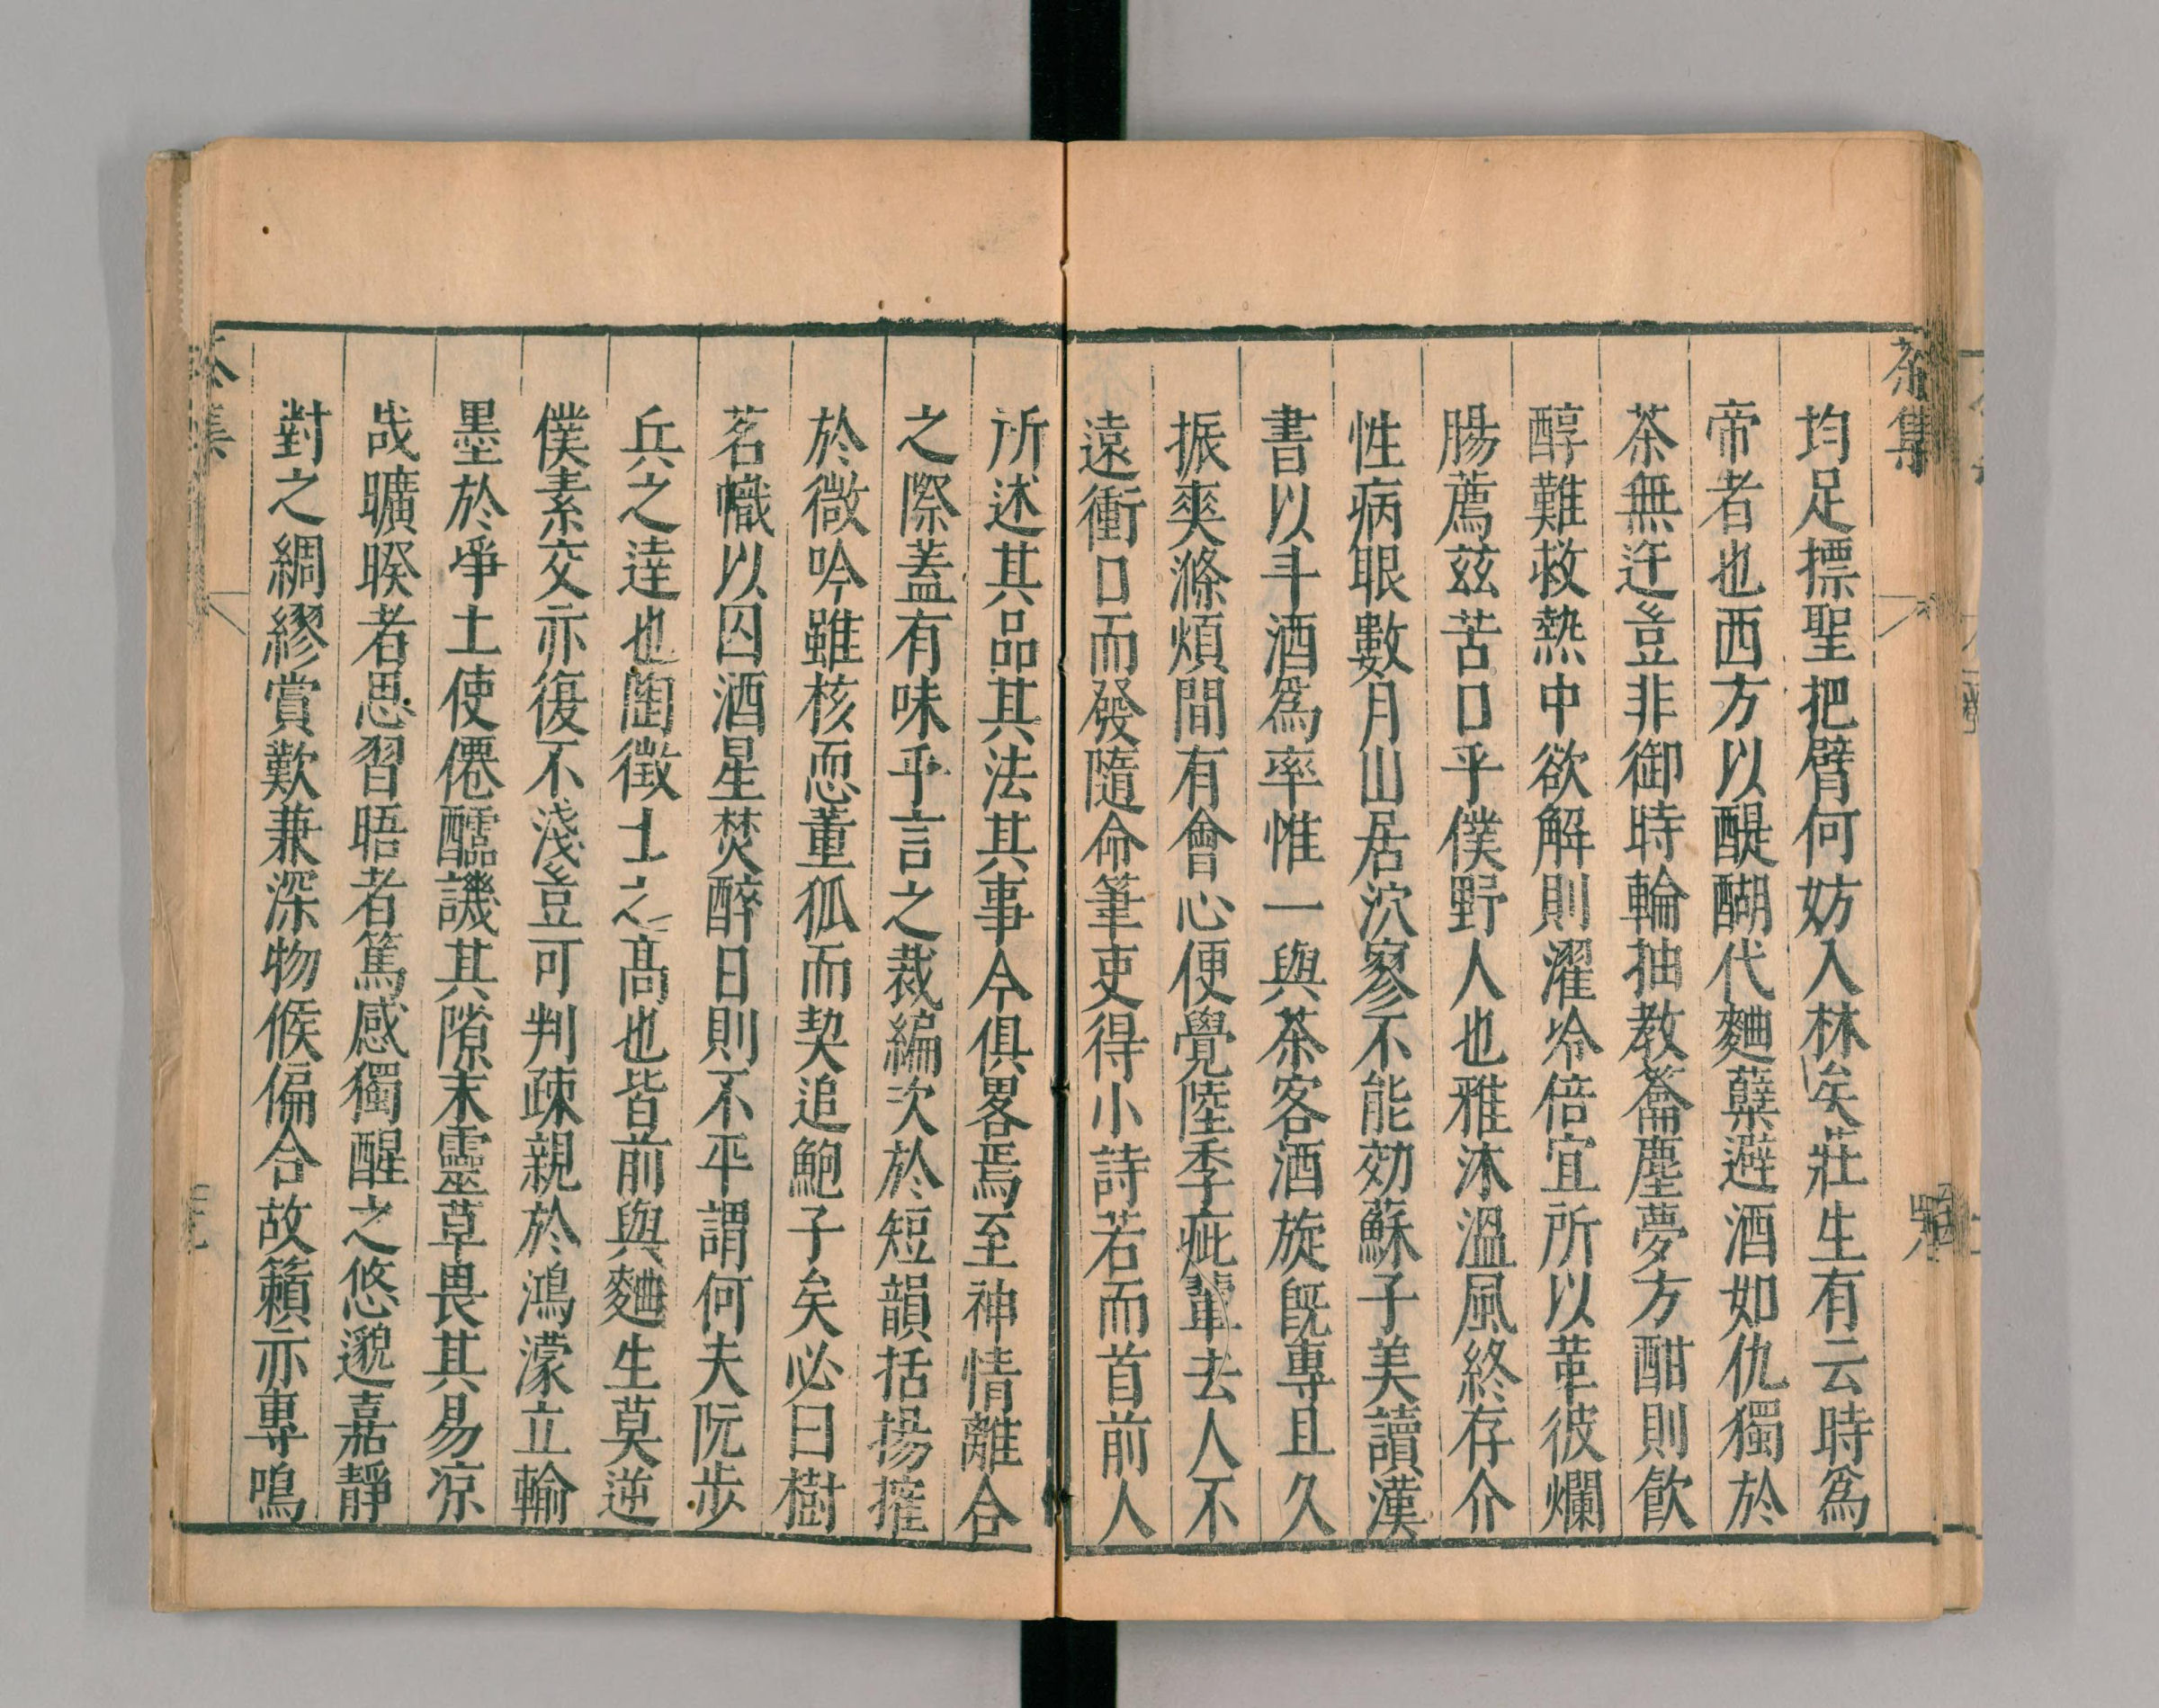 茶集
均足摽聖把臂何妨入林矣莊生有云時爲
帝者也西方以醍醐代麯蘖避酒如仇獨於
茶無迕豈非御時輪抽教籥塵夢方酣則飲
醇難救熱中欲解則濯冷倍宜所以革彼爛
腸薦茲苦口乎僕野人也雅沐溫風終存介
性病眼數月山居泬寥不能効蘇子美讀漢
書以斗酒爲率惟一與茶客酒旋旣專且久
振爽滌煩間有會心便覺陸季疵輩去人不
遠衝口而發隨命筆吏得小詩若而首前人
所述其品其法其事今俱畧焉至神情離合
之際蓋有味乎言之裁編次於短韻括揚搉
於微吟雖核恧董狐而契追鮑子矣必曰樹
茗幟以囚酒星焚醉日則不平謂何夫阮步
兵之達也陶徵士之高也皆前與麯生莫逆
僕素交亦復不淺豈可判疎親於鴻濛立輸
墨於爭土使僊醹譏其隙末靈草畏其易涼
哉曠睽者思習晤者篤感獨醒之悠邈嘉靜
對之綢繆賞歎兼深物候偏合故籟亦專鳴